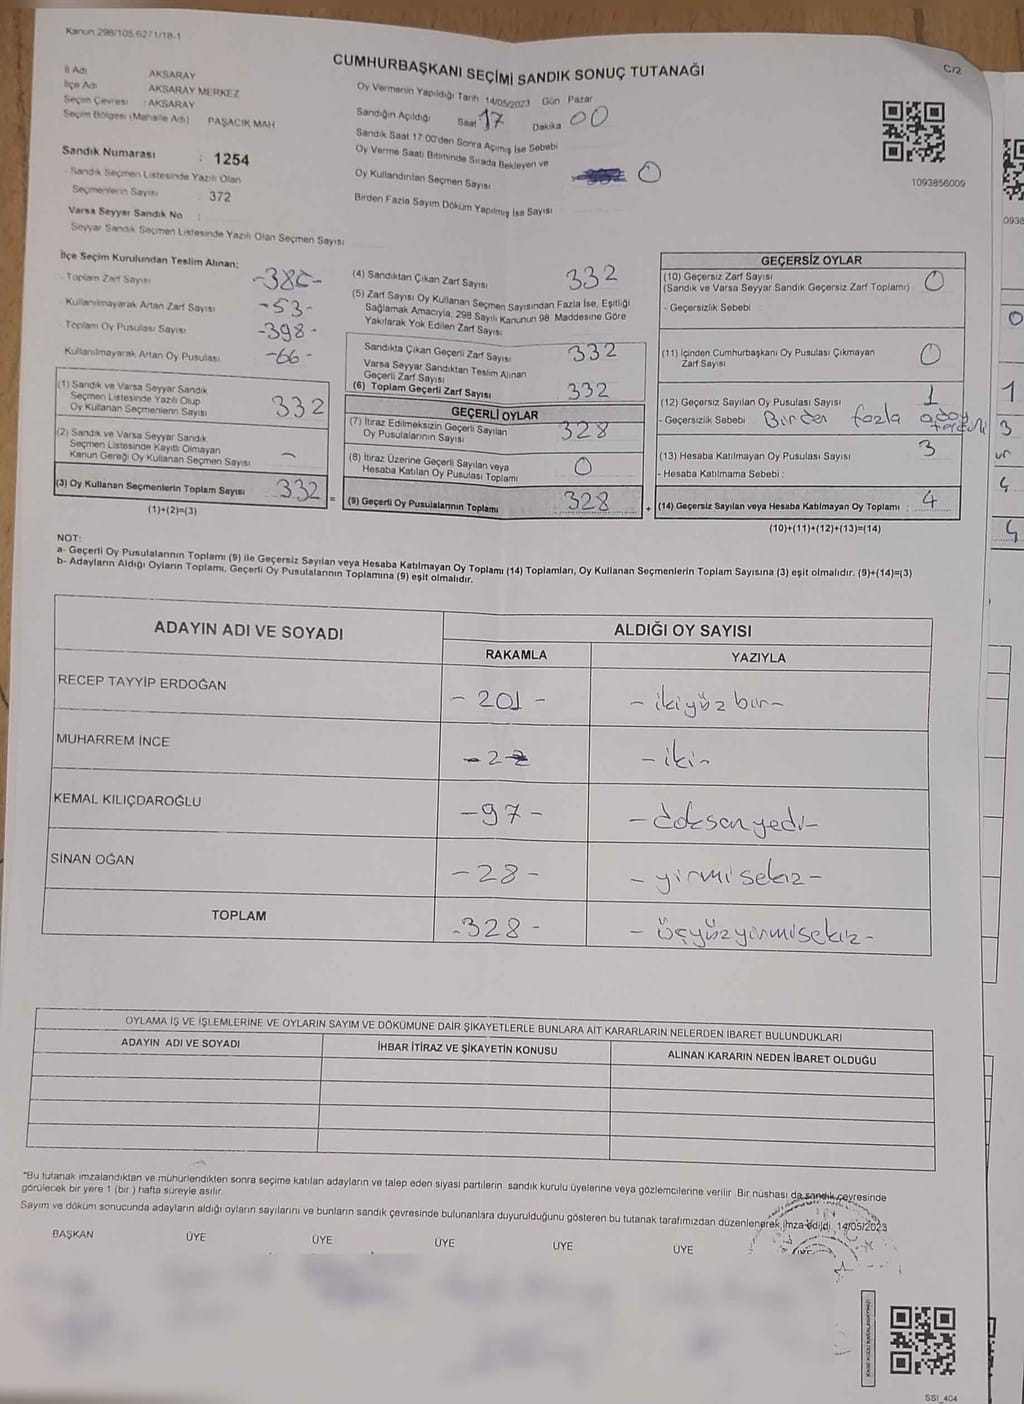 Kanun 298/105 6271/18-1
CUMHURBAŞKANI SEÇİMİ SANDIK SONUÇ TUTANAĞI
C/2
İl Adı AKSARAY
İlçe Adı AKSARAY MERKEZ
Seçim Çevresi : AKSARAY
Seçim Bölgesi (Mahalle Adı) PAŞACIK MAH
Oy Vermenin Yapıldığı Tarih 14/05/2023 Gün Pazar
Sandığın Açıldığı Saat 17 Dakika 00
Sandık Saat 17 00'den Sonra Açımış İse Sebebi
Oy Verme Saati Bitiminde Sırada Bekleyen ve
Oy Kullandırılan Seçmen Sayısı 0
Birden Fazla Sayım Döküm Yapılmış İse Sayısı
1093856009
Sandık Numarası : 1254
- Sandık Seçmen Listesinde Yazılı Olan
Seçmenlerin Sayısı : 372
Varsa Seyyar Sandık No :
Seyyar Sandık Seçmen Listesinde Yazılı Olan Seçmen Sayısı
İlçe Seçim Kurulundan Teslim Alınan;
- Toplam Zarf Sayısı
- Kullanılmayarak Artan Zarf Sayısı -53-
- Toplam Oy Pusulası Sayısı -398-
Kullanılmayarak Artan Oy Pusulası -66-
(1) Sandık ve Varsa Seyyar Sandık
Seçmen Listesinde Yazılı Olup
Oy Kullanan Seçmenlerin Sayısı 332
(2) Sandık ve Varsa Seyyar Sandık
Seçmen Listesinde Kayıtlı Olmayan
Kanun Gereği Oy Kullanan Seçmen Sayısı -
(3) Oy Kullanan Seçmenlerin Toplam Sayısı 332 =
(1)+(2)=(3)
(4) Sandıktan Çıkan Zarf Sayısı 332
(5) Zarf Sayısı Oy Kullanan Seçmen Sayısından Fazla İse, Eşitliği
Sağlamak Amacıyla, 298 Sayılı Kanunun 98. Maddesine Göre
Yakılarak Yok Edilen Zarf Sayısı
Sandıkta Çıkan Geçerli Zarf Sayısı 332
Varsa Seyyar Sandıktan Teslim Alınan
Geçerli Zarf Sayısı
(6) Toplam Geçerli Zarf Sayısı 332
GEÇERLİ OYLAR
(7) İtiraz Edilmeksizin Geçerli Sayılan
Oy Pusulalarının Sayısı 328
(8) İtiraz Üzerine Geçerli Sayılan veya
Hesaba Katılan Oy Pusulası Toplamı 0
(9) Geçerli Oy Pusulalarının Toplamı 328 +
GEÇERSİZ OYLAR
(10) Geçersiz Zarf Sayısı 0
(Sandık ve Varsa Seyyar Sandık Geçersiz Zarf Toplamı)
- Geçersizlik Sebebi :
(11) İçinden Cumhurbaşkanı Oy Pusulası Çıkmayan
Zarf Sayısı 0
(12) Geçersiz Sayılan Oy Pusulası Sayısı 1
- Geçersizlik Sebebi : Birden fazla
(13) Hesaba Katılmayan Oy Pusulası Sayısı 3
- Hesaba Katılmama Sebebi :
(14) Geçersiz Sayılan veya Hesaba Katılmayan Oy Toplamı : 4
(10)+(11)+(12)+(13)=(14)
NOT:
a- Geçerli Oy Pusulalarının Toplamı (9) ile Geçersiz Sayılan veya Hesaba Katılmayan Oy Toplamı (14) Toplamları, Oy Kullanan Seçmenlerin Toplam Sayısına (3) eşit olmalıdır. (9)+(14)=(3)
b- Adayların Aldığı Oyların Toplamı, Geçerli Oy Pusulalarının Toplamına (9) eşit olmalıdır.
ADAYIN ADI VE SOYADI
ALDIĞI OY SAYISI
RAKAMLA YAZIYLA
RECEP TAYYİP ERDOĞAN - 201 - - ikiyüz bir -
MUHARREM İNCE - 2 - iki -
KEMAL KILIÇDAROĞLU - 97 - - doksan yedi -
SİNAN OĞAN - 28 - - yirmi sekiz -
TOPLAM - 328 - - üçyüzyirmisekiz -
OYLAMA İŞ VE İŞLEMLERİNE VE OYLARIN SAYIM VE DÖKÜMÜNE DAİR ŞİKAYETLERLE BUNLARA AİT KARARLARIN NELERDEN İBARET BULUNDUKLARI
ADAYIN ADI VE SOYADI İHBAR İTİRAZ VE ŞİKAYETİN KONUSU ALINAN KARARIN NEDEN İBARET OLDUĞU
*Bu tutanak imzalandıktan ve mühürlendikten sonra seçime katılan adayların ve talep eden siyasi partilerin sandık kurulu üyelerine veya gözlemcilerine verilir Bir nüshası da sandık çevresinde
görülecek bir yere 1 (bir ) hafta süreyle asılır.
Sayım ve döküm sonucunda adayların aldığı oyların sayılarını ve bunların sandık çevresinde bulunanlara duyurulduğunu gösteren bu tutanak tarafımızdan düzenlenerek imza edildi. 14/05/2023
BAŞKAN ÜYE ÜYE ÜYE ÜYE ÜYE
SSI_404